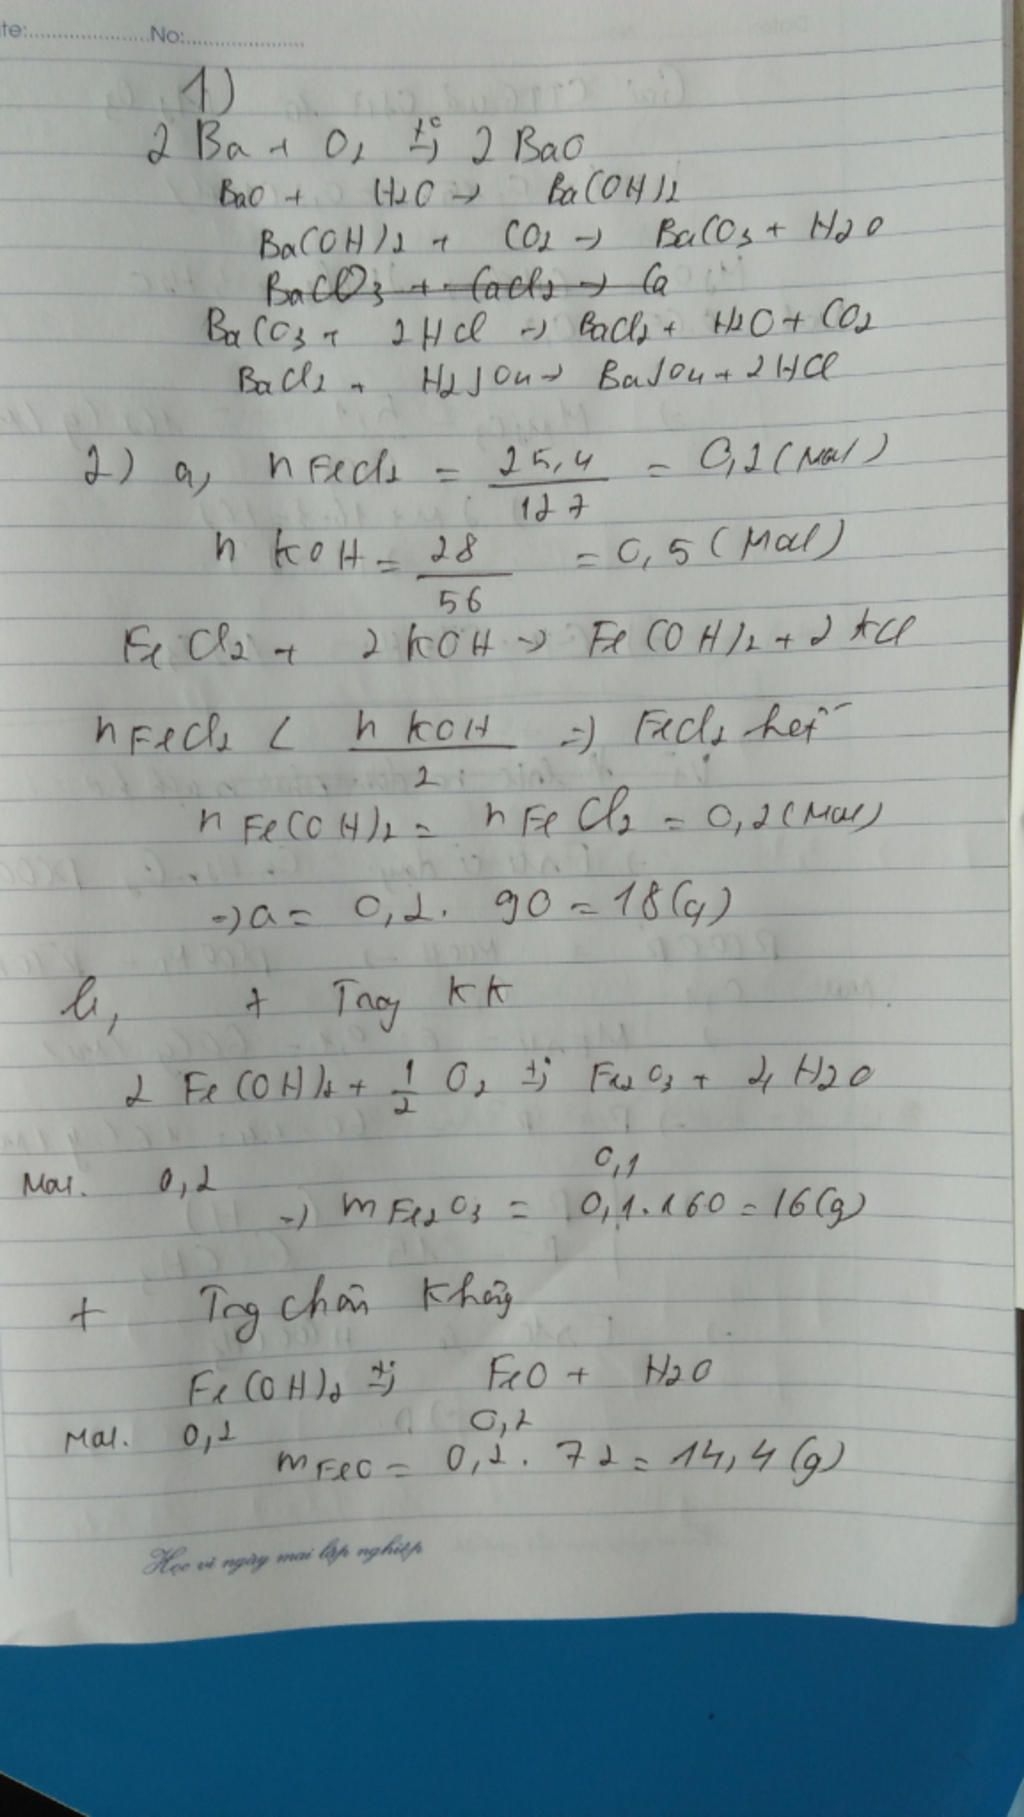 te:.....................No:.....................
1)
2 Ba + O2 t°→ 2 BaO
BaO + H2O → Ba(OH)2
Ba(OH)2 + CO2 → BaCO3 + H2O
BaCO3 + CaCl2 → Ca
BaCO3 + 2HCl → BaCl2 + H2O + CO2
BaCl2 + H2SO4 → BaSO4 + 2HCl
2) a, nFeCl2 = 25,4/127 = 0,2 (Mol)
n KOH = 28/56 = 0,5 (Mol)
FeCl2 + 2 KOH → Fe(OH)2 + 2 KCl
nFeCl2 < n KOH/2 => FeCl2 hết
nFe(OH)2 = nFeCl2 = 0,2 (Mol)
=> a = 0,2 . 90 = 18(g)
b, + Trog KK
2 Fe(OH)2 + 1/2 O2 t°→ Fe2O3 + 2 H2O
Mol. 0,2 0,1
=> mFe2O3 = 0,1.160 = 16(g)
+ Trg chân không
Fe(OH)2 t°→ FeO + H2O
Mol. 0,2 0,2
mFeO = 0,2 . 72 = 14,4 (g)
Học vì ngày mai lập nghiệp